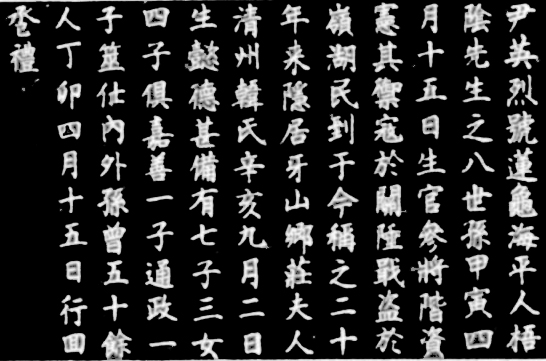 尹英烈號蓮龜海平人梧
陰先生之八世孫甲寅四
月十五日生官參將階資
憲其禦寇於關陲戰盜於
嶺湖民到于今稱之二十
年来隱居牙山鄉莊夫人
清州韓氏辛亥九月二日
生懿德甚備有七子三女
四子俱嘉善一子通政一
子筮仕內外孫曾五十餘
人丁卯四月十五日行回
巹禮